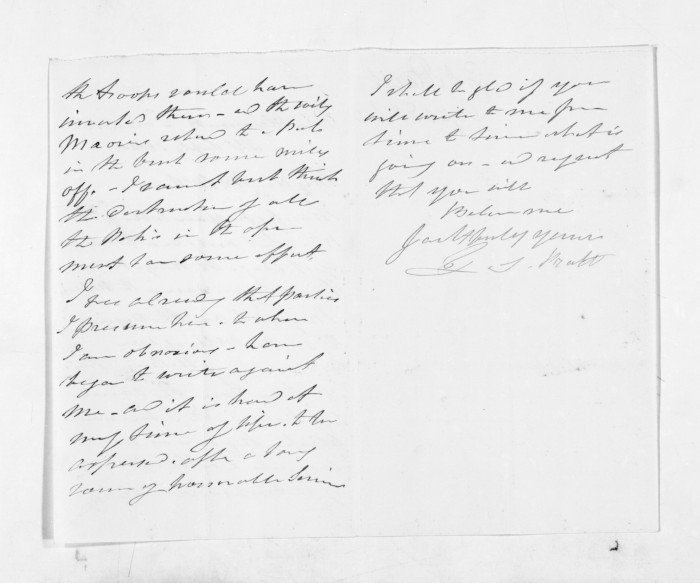 the troops could have
invested them - and the wily
Maories retired to a Pah
in the bush some miles
off. - I cannot but think
the destruction of all
the Pah's in the open
must have some effect.
I see already that parties
I presume here. to whom
I am obnoxious - have
began to write against
me - and it is hard at
my time of life. to be
aspersed. after a long
course of honorable Service
I shall be glad if you
will write to me from
time to time what is
going on - and request
that you will
Believe me
faithfully yours
T. S. Pratt
4